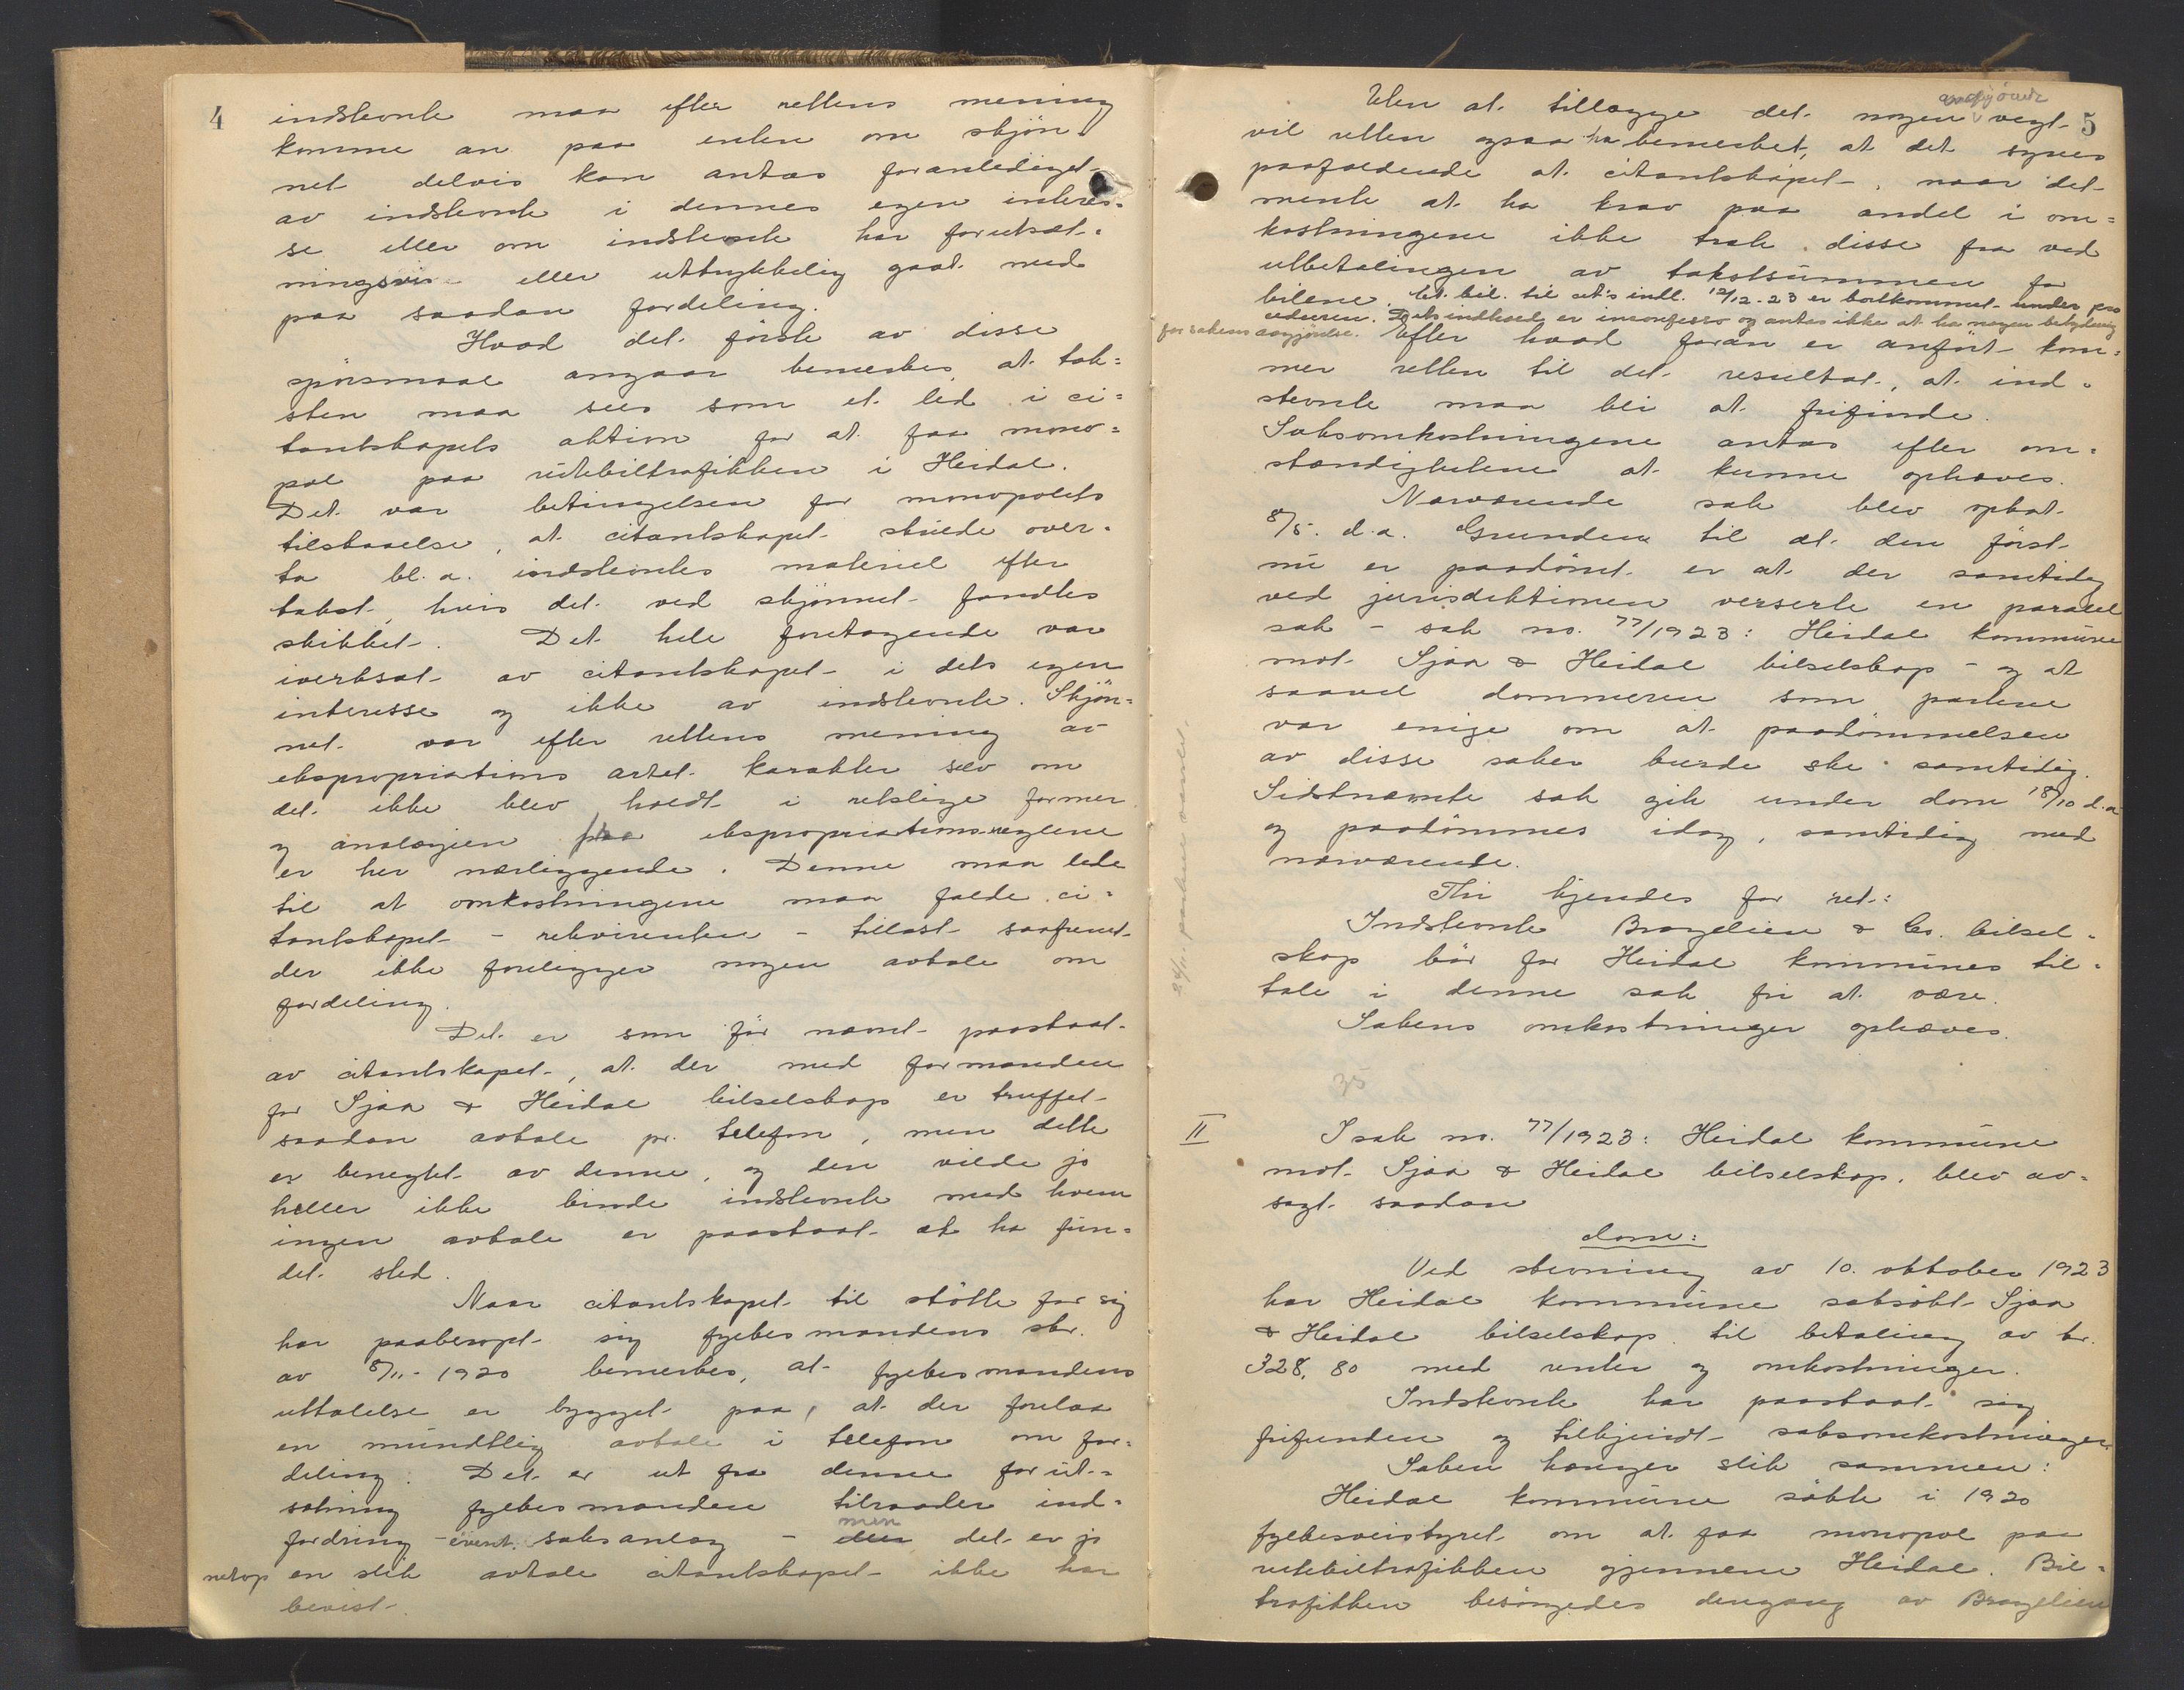 4
indstevnte maa efter rettens mening
komme an paa enten om skjön-
net delvis kan antas foranlediget
av indstevnte i dennes egen interes=
se eller om indstevnte har forutsæt=
ningsvis eller uttrykkelig gaat med
paa saadan fordeling.
Hvad det første av disse
spörsmaal angaar bemerkes at tak=
sten maa sees som et led i ci=
tantskapets aktion for at faa mono=
pol paa rutebiltrafikken i Heidal.
Det var betingelsen for monopolets
tilstaaelse, at citantskapet skulde over=
ta bl.a. indstevntes materiel efter
takst, hvis det ved skjönnet fandtes
skikket. Det hele foretagende var
iverksat av citantskapet i dets egen
interesse og ikke av indstevnte. Skjön=
net var efter rettens mening av
ekspropriations artet karakter selv om
det ikke blev holdt i rekslige former
og analogien fra ekspropriationsreglene
er her nærliggende. Denne maa lede
til at omkostningene maa falde ci=
tantskapet - rekvirenten - tillast saafremt
der ikke foreligger nogen avtale om
fordeling.
Det er som för nævnt paastaat
av citantskapet, at der med formanden
for Sjoa & Heidal bilselskap er truffet
saadan avtale pr. telefon, men dette
er benegtet av denne, og den vilde jo
heller ikke binde indstevnte med hvem
ingen avtale er paastaat at ha fun=
det sted.
Naar citantskapet til stötte for sig
har paaberopt sig fylkesmandens skr.
av 8/11-1920 bemerkes, at fylkesmandens
uttalelse er bygget paa, at der forelaa
en mundtlig avtale i telefon om for=
deling. Det er ut fra denne forut=
sætning fylkesmanden tilraader ind=
fordring - event. saksanlæg - men det er jo
netop en slik avtale citantskapet ikke har
bevist.
5
Uten at tillægge det nogen avgjörende vegt
vil retten ogsaa ha bemerket, at det synes
paafaldende at citantskapet, naar det
mente at ha krav paa andel i om=
kostningene ikke trak disse fra ved
utbetalingen av takstsummen for
bilene. Et bil. til cit's indl. 12/12-23 er bortkommet under pro
ceduren. Dets indhold er inconfesso og antas ikke at ha nogen betydning
for sakens avgjörelse. Efter hvad foran er anfört kom=
mer retten til det resultat, at ind=
stevnte maa bli at frifinde.
Saksomkostningene antas efter om=
stændighetene at kunne ophæves.
Nærværende sak blev optat
8/5. d.a. Grunden til at den först
nu er paadömt er at der samtidig
ved jurisdiktionen verserte en paralel
sak - sak no. 77/1923: Heidal kommune
mot Sjoa & Heidal bilselskap - og at
saavel dommeren som partene
var enige om at paadömmelsen
av disse saker burde ske samtidig.
Sidstnævnte sak gik under dom 18/10 d.a
og paadömmes idag, samtidig med
nærværende.
Thi kjendes for ret:
Indstevnte Brazelien & Co. bilsel=
skap bör for Heidal kommunes til=
tale i denne sak fri at være.
Sakens omkostninger ophæves.
35
II
I sak no. 77/1923: Heidal kommune
mot Sjoa & Heidal bilselskap, blev av=
sagt saadan
dom:
Ved stevning av 10. oktober 1923
har Heidal kommune saksökt Sjoa
& Heidal bilselskap til betaling av kr.
328,80 med renter og omkostninger.
Indstevnte har paastaat sig
frifunden og tilkjendt saksomkostninger.
Saken hænger slik sammen:
Heidal kommune sökte i 1920
fylkesveistyret om at faa monopol paa
rutebiltrafikken gjennem Heidal. Bil=
trafikken besörgedes dengang av Brazelien